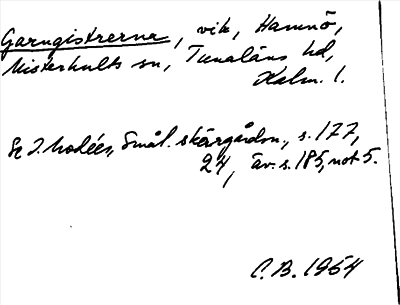 Garngistrerna, vik, Hamnö,
Misterhults sn, Tunaläns hd,
Kalm. l.
Se I. Modéer, Smål. skärgårdsn., s. 177,
24, äv. s. 185, not 5.
C.B. 1964